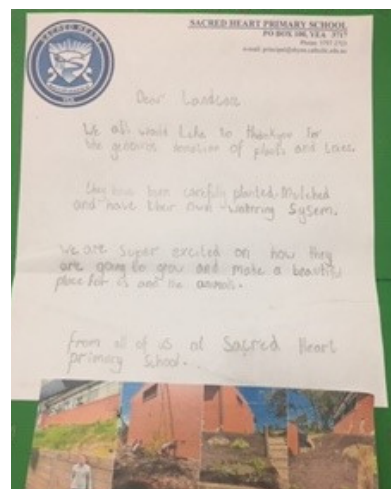 SACRED HEART PRIMARY SCHOOL
PO BOX 100, YEA 3717
Phone: 5797 2753
SACRED HEART
YEA
Dear Landcare
We all would Like to thankyou for
the generous donation of plants and trees.
they have been carefully planted, Mulched
and have their own watering Sysem.
we are super excited on how they
are going to grow and make a beautiful
place for us and the animals.
from all of us at Sacred Heart
primary School.